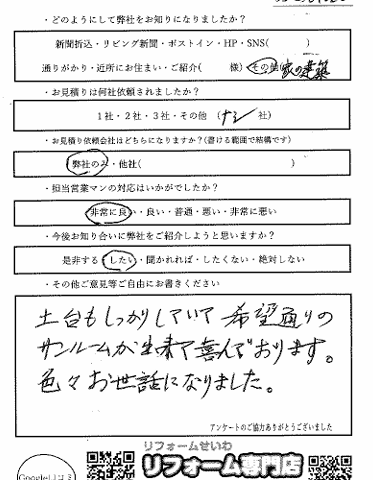 ・どのようにして弊社をお知りになりましたか？
新聞折込・リビング新聞・ポストイン・HP・SNS(　　　)
通りがかり・近所にお住まい・ご紹介(　　　様) その他(家の建築
・お見積りは何社依頼されましたか？
1社・2社・3社・その他 (ナシ 社)
・お見積り依頼会社はどちらになりますか？(書ける範囲で結構です)
弊社のみ・他社(　　　)
・担当営業マンの対応はいかがでしたか？
非常に良い・良い・普通・悪い・非常に悪い
・今後お知り合いに弊社をご紹介しようと思いますか？
是非する・したい・聞かれれば・したくない・絶対しない
・その他ご意見等ご自由にお書きください
土台もしっかりしていて希望通りの
サンルームが出来て喜んでおります。
色々お世話になりました。
アンケートのご協力ありがとうございました
リフォームせいわ
リフォーム専門店
Google口コミ